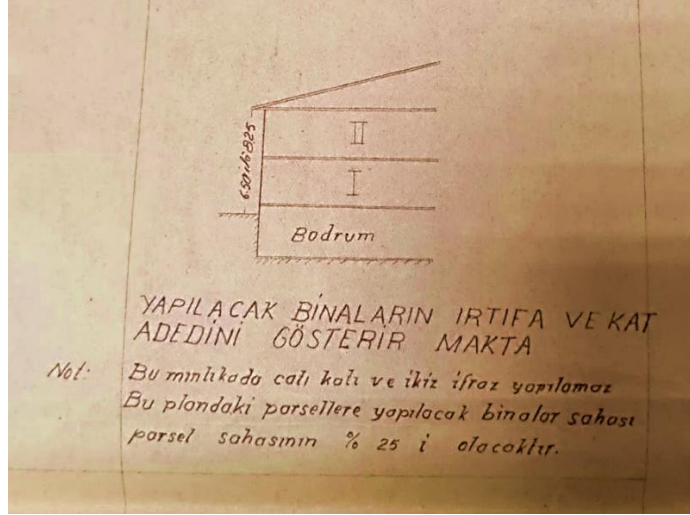 II
6.50 ilâ 8.25
I
Bodrum
YAPILACAK BİNALARIN IRTIFA VE KAT
ADEDİNİ GÖSTERİR MAKTA
Not: Bu mıntıkada catı katı ve ikiz ifraz yapılamaz
Bu plandaki parsellere yapılacak binalar sahası
parsel sahasının % 25 i olacaktır.